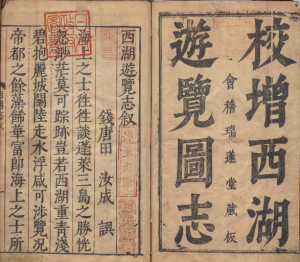 校增西湖
會稽瑞蓮堂藏板
遊覽圖志
西湖遊覽志叙
錢唐田 汝成 譔
海上之士徃徃談蓬萊三島之勝恍
忽渺茫莫可踪跡豈若西湖重青淺
碧抱麗城闉陸走水浮咸可涉覽况
帝都之餘藻飾華富即海上之士所